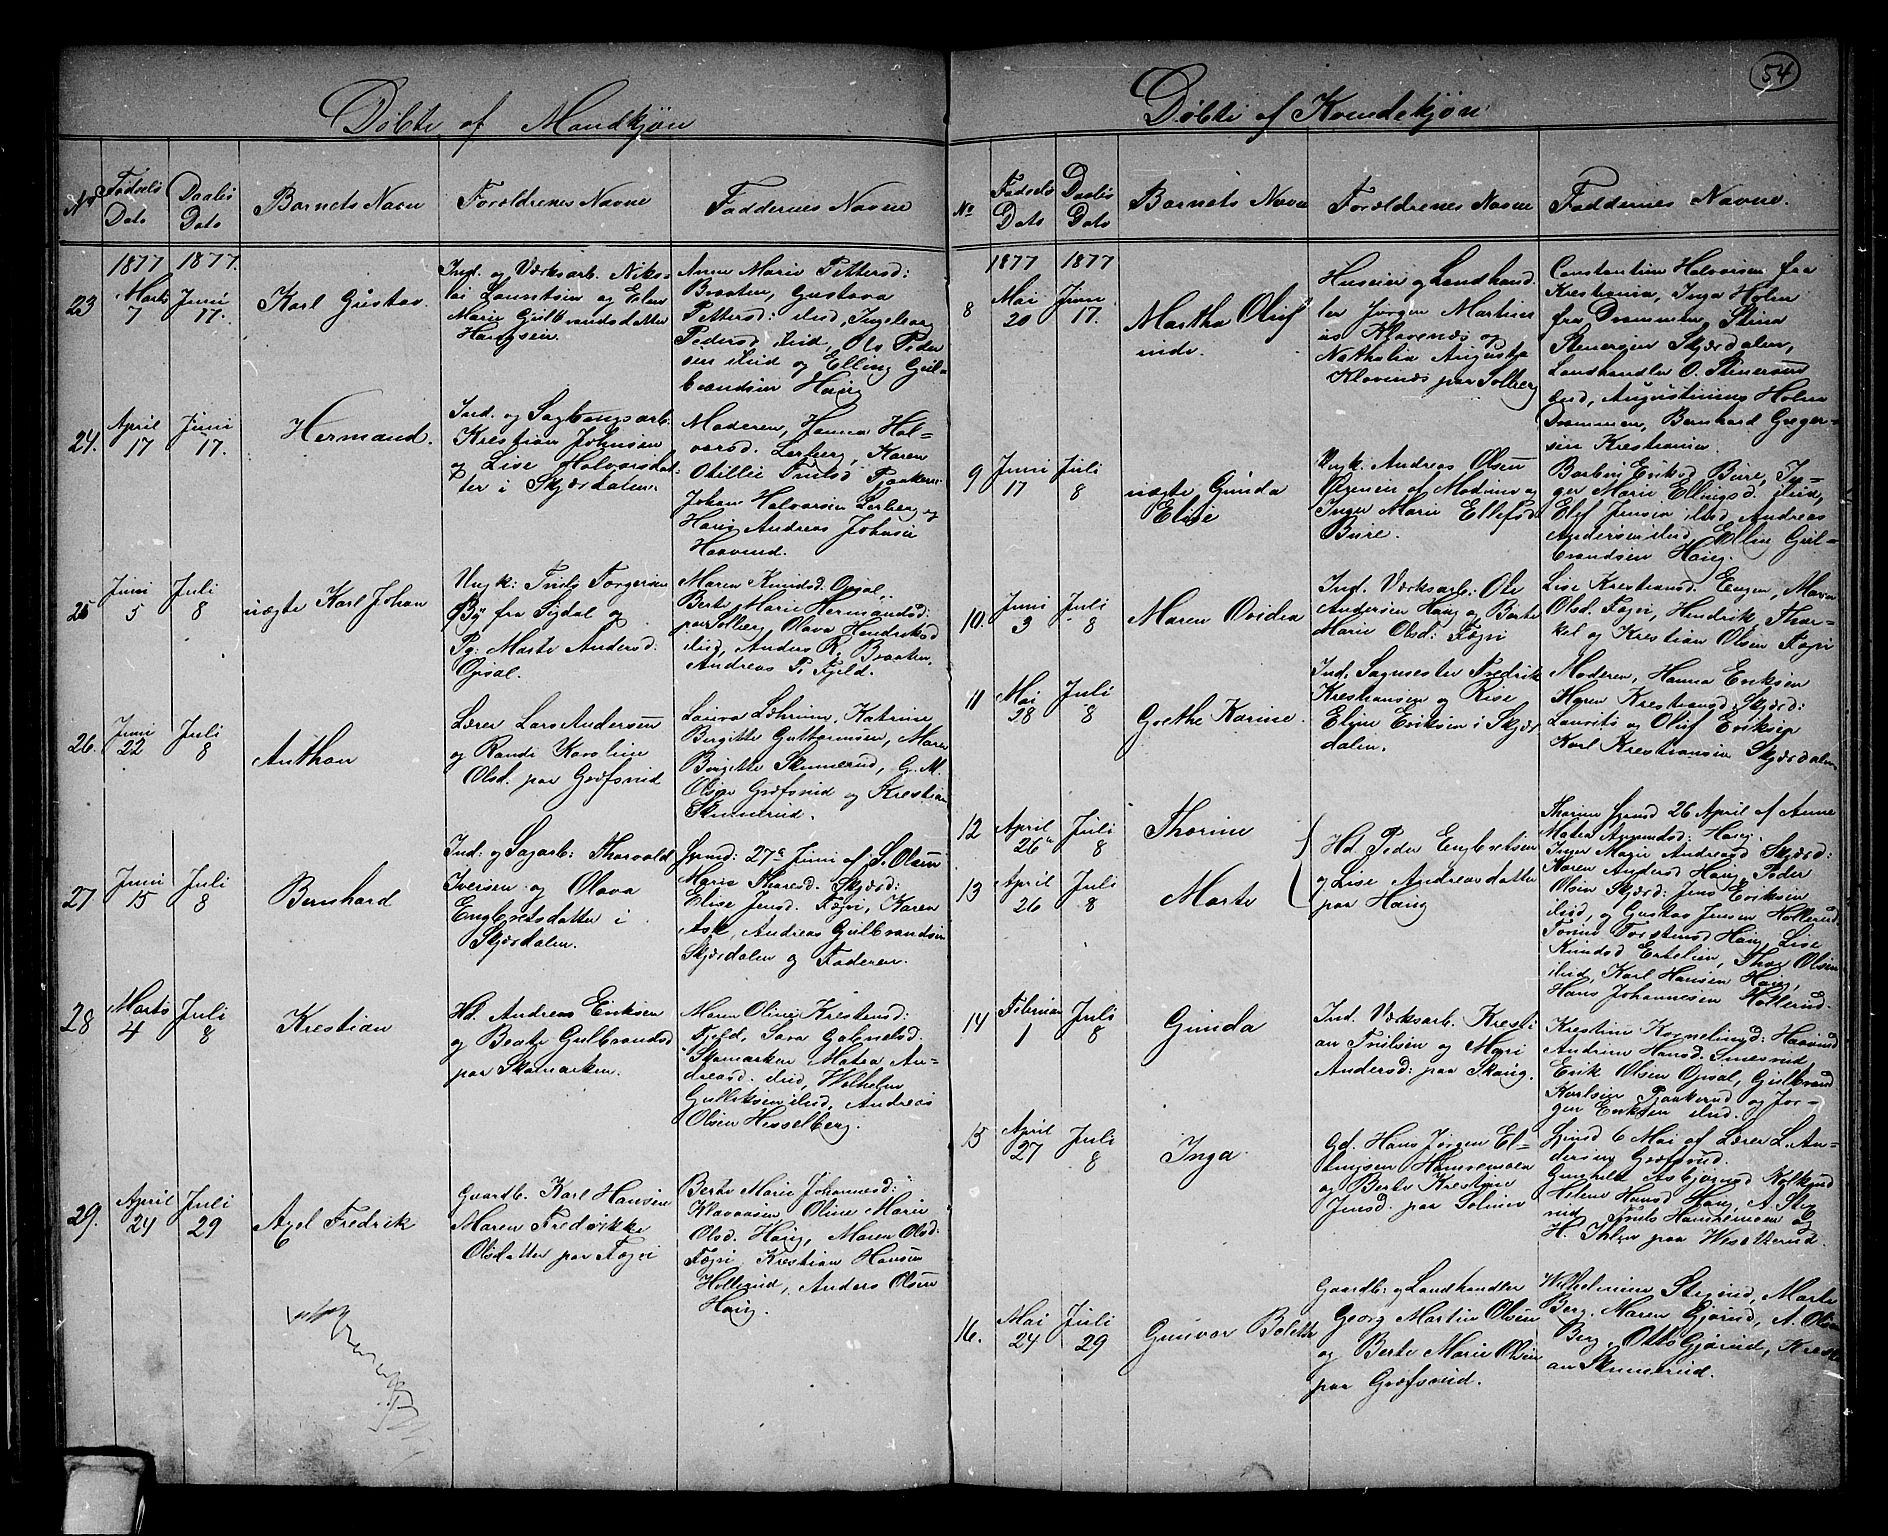 54
Døbte af Mandkjøn
No
Fødsels
Dato
Daabs
Dato
Barnets Navn
Forældrenes Navne
Faddernes Navne
1877
1877.
23
Marts
7
Juni
17.
Karl Gustav.
Ind. og Værksarb. Niko-
lai Lauritsen og Elen
Marie Gulbrandsdatter
Haugsen.
Anne Marie Pettersd:
Braaten, Gustava
Pettersd: ibid, Ingeborg
Pedersd ibid, Ole Peder
sen ibid og Elling Gul-
brandsen Haug
24.
April
17
Juni
17.
Hermand.
Ind. og Sagbrugsarb.
Krestian Johnsen
og Lise Halvorsdat-
ter i Skjærdalen.
Moderen, Hanna Hal-
vorsd. Lerberg, Karen
Otillie Trulsd Pjaakerud
Johan Halvorsen Lerberg og
Haug Andreas Johnsen
Haavind.
25
Juni
5
Juli
8
uægte Karl Johan
Ungk: Truls Torgersen
By fra Sigdal og
Pg: Marte Andersd:
Opsal.
Maren Knudsd. Opsal,
Berte Marie Hermandsd:
paa Solberg Olava Hendriksd
ibid, Anders R. Braaten,
Andreas P. Fjeld.
26.
Juni
22
Juli
8
Anthon
Lærer Lars Andersen
og Randi Karoline
Olsd. paa Græfsrud
Laura Læhrum, Katrine
Bergitte Guttormsen, Maren
Bergitte Skinnerud, G. M.
Olsen Græfsrud og Krestian
Skinnerud.
27
Juni
15
Juli
8
Bernhard
Ind: og Sagarb: Thorvald
Iversen og Olava
Engbretsdatter i
Skjærdalen.
Hjemd: 27de Juni af S. Olsen
Marie Thoresd. Skjærd:
Elise Jensd. Fægri, Karen
Ask, Andreas Gulbrandsen
Skjærdalen og Faderen.
28
Marts
4
Juli
8
Krestian
Hd. Andreas Eriksen
og Beate Gulbrandsd
paa Skamarken.
Maren Oline Krestensd:
Fjeld, Sara Gabrielsd.
Skamarken Matea An-
dreasd. ibid, Wilhelm
Gulliksen ibid, Andreas
Olsen Hesselberg.
29.
April
24
Juli
29
Axel Fredrik
Gaardb. Karl Hansen
Maren Fredrikke
Olsdatter paa Fægri
Berte Marie Johannesd:
Oline Marie
Olsd. Haug, Maren Olsd:
Fægri, Krestian Hansen
Hollerud, Anders Olsen
Haug.
Døbte af Kvindekjøn
No
Fødsels
Dato
Daabs
Dato
Barnets Navn
Forældrenes Navne
Faddernes Navne.
1877
1877
8
Mai
20
Juni
17.
Martha Oluf
inde.
Huseier og Landhand
ler Jørgen Martini
us Klavenæs og
Nathalia Augusta
Klavenæs paa Solberg
Constantin Halvorsen fra
Krestiania, Inga Holm
fra Drammen, Stina
Stenersen Skjærdalen,
Landhandler O. Stenersen
ibid, Augustinius Holm
Drammen, Bernhard Greger-
sen Krestiania.
9
Juni
17
Juli
8
uægte Gunda
Elise
Ungk. Andreas Olsen
Øigenien af Modum og
Inger Marie Ellefsd
Bure.
Barbro Eriksd Bure, In-
ger Marie Ellingsd. ibid,
Elef Jensen ibid, Andreas
Andersen ibid, Ellen Gul-
brandsen Haug.
10.
Juni
3
Juli
8
Maren Ovidea
Ind. Værksarb: Ole
Andersen Haug og Berte
Marie Olsd: Fægri
Lise Krestiansd. Engen, Maren
Olsd. Fægri, Hendrik Thor-
kel og Krestian Olsen Fægri
11
Mai
28
Juli
8
Grethe Karine.
Ind. Sagmester Fredrik
Krestiansen og Rise
Eline Eriksen i Skjær
dalen.
Moderen, Hanna Eriksen
Karen Krestiansd. Skjærd:
Laurits og Oluf Eriksen
Karl Krestiansen Skjærdalen
12
April
26
Juli
8
Thorine
13
April
26
Juli
8
Marte
Hd Peder Engbretsen
og Lise Andreasdatter
paa Haug
Thorine hjemd 26 April af Anne
Matea Amundsd: Haug.
Inger Marie Andreasd Skjærd:
Maren Andersd Haug, Peder
Olsen Skjærd: Jens Eriksen
ibid, og Gustav Jensen Hollerud
Torine Torstensd Haug, Lise
Knudsd Ertelien, Thor Olsen
ibid, Karl Hansen Haug,
Hans Johannesen Hollerud.
14
Februar
1
Juli
8
Gunda
Ind. Værksarb. Kresti
an Trulsen og Mari
Andersd: paa Skaug.
Krestine Korneliusd: Haavind
Andrine Hansd. Smesrud,
Erik Olsen Opsal, Gulbrand
Karlsen Pjaakerud og Jør-
gen Eriksen ibid.
15
April
27
Juli
8
Inga
Gd. Hans Jørgen El-
lingsen Hamremoen
og Berte Krestine
Jensd. paa Solum
Hjemd 6 Mai af Lærer L. An-
dersen Græfsrud.
Gunhild Asbjørnsd Kolkjend
Helene Hansd Haug, A. Steg
rud, Truls Hamremoen og
H. Ihlen paa Wesetrud.
16.
Mai
24
Juli
29
Gunvor Bolette
Gaardb: og Landhandler
Georg Martin Olsen
og Berte Marie Olsen
paa Græfsrud.
Wilhelmine Stegrud, Marte
Berg, Maren Gjørud, A. Olsen
Berg, Otto Gjørud, Kresti
an Skinnerud.